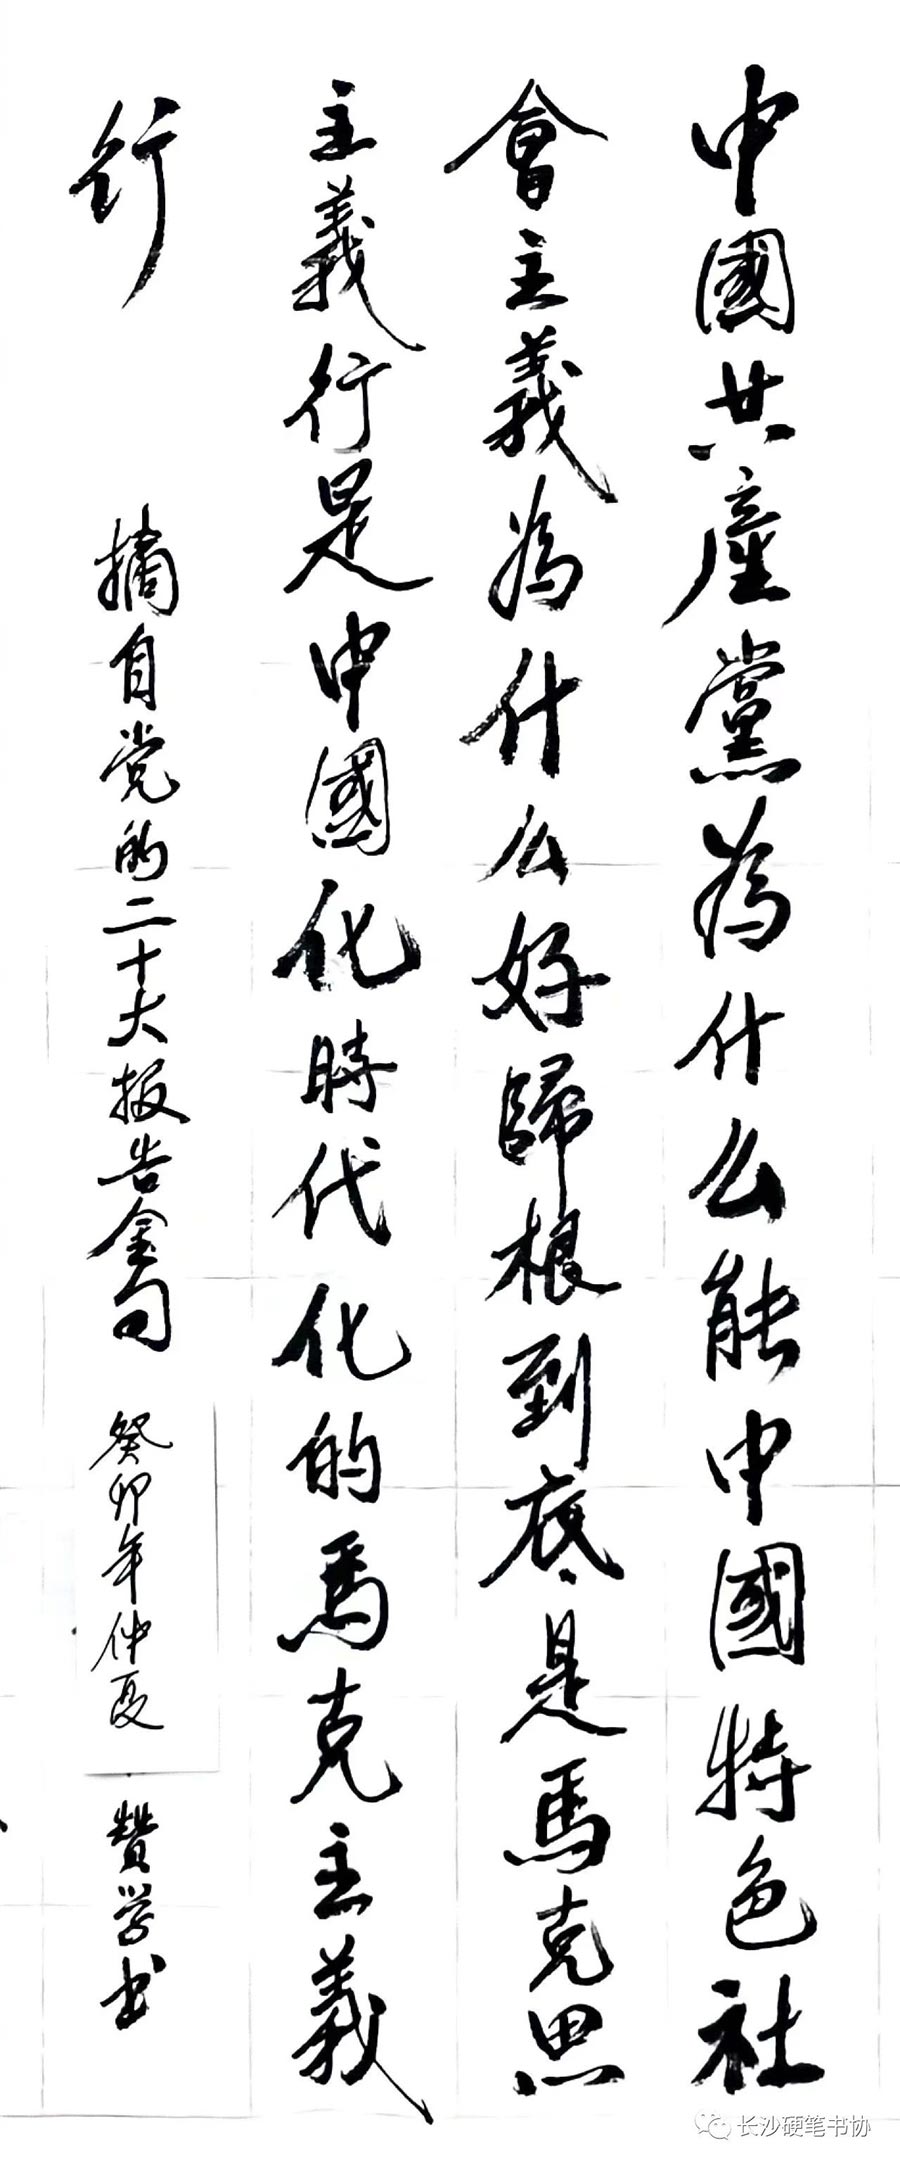 中國共產黨為什么能中國特色社
會主義為什么好歸根到底是馬克思
主義行是中國化時代化的馬克主義
行 摘自党的二十大报告金句 癸卯年仲夏 赞学书
长沙硬笔书协